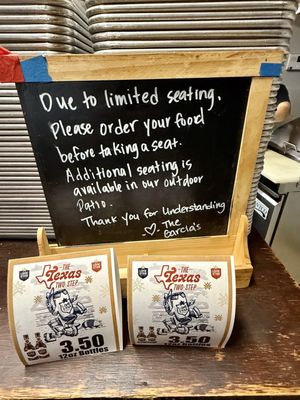 Due to limited seating,
Please order your food
before taking a seat.
Additional seating is
available in our outdoor
Patio.
Thank you for Understanding
♡ The
Garcia's
THE
Texas
TWO STEP
3.50
12oz Bottles
THE
Texas
TWO STEP
3.50
12oz Bottles